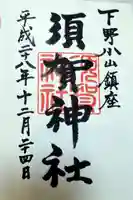 下野小山鎮座
須賀神社
平成二十八年十二月二十四日